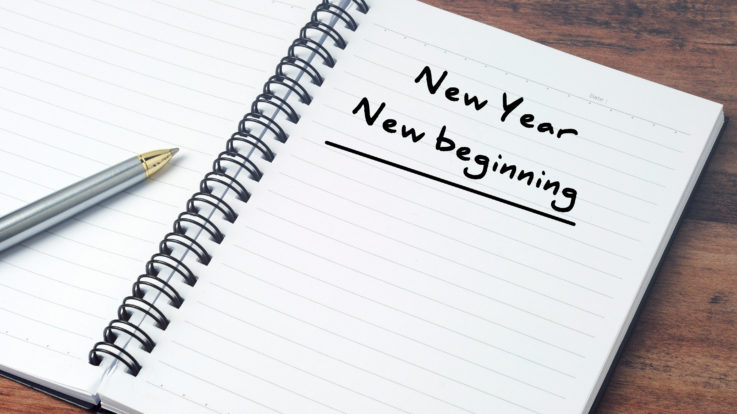 Date :
New Year
New beginning